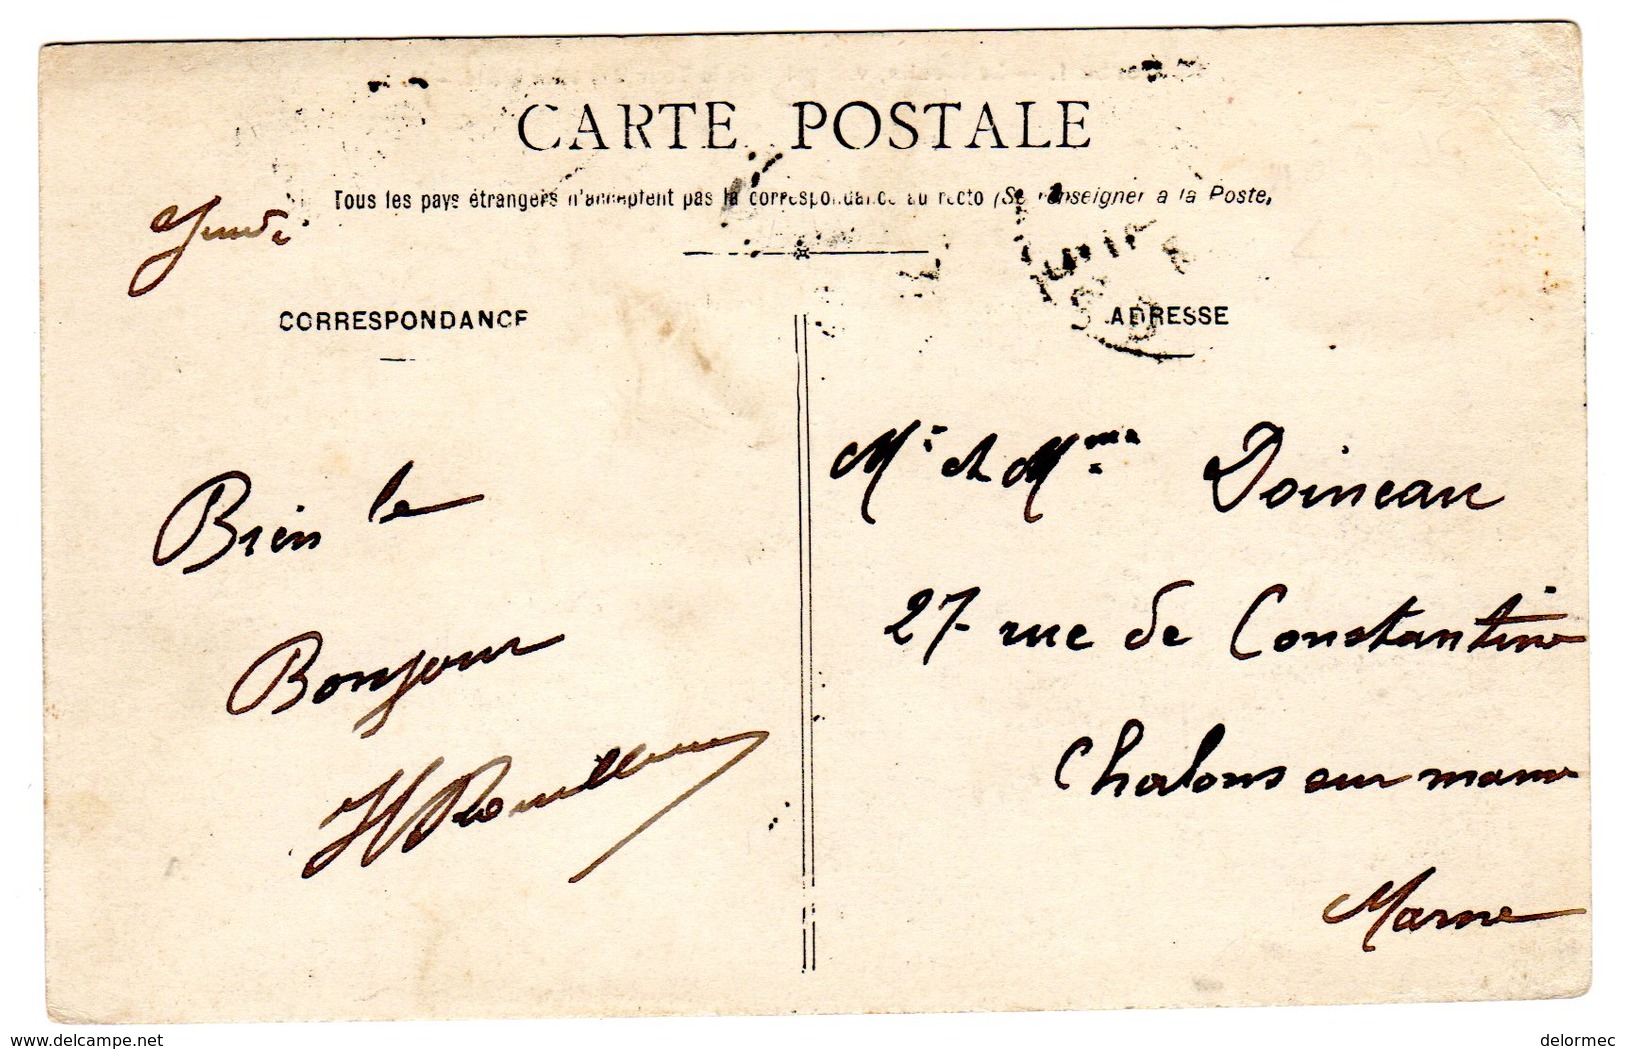 CARTE POSTALE
Tous les pays étrangers n'acceptent pas la correspondance au recto (Se renseigner à la Poste,
Jeudi
CORRESPONDANCE
Bien le
Bonjour
ADRESSE
Mr et Mme Doineau
27 rue de Constantine
Chalons sur marne
Marne
www.delcampe.net
delormec